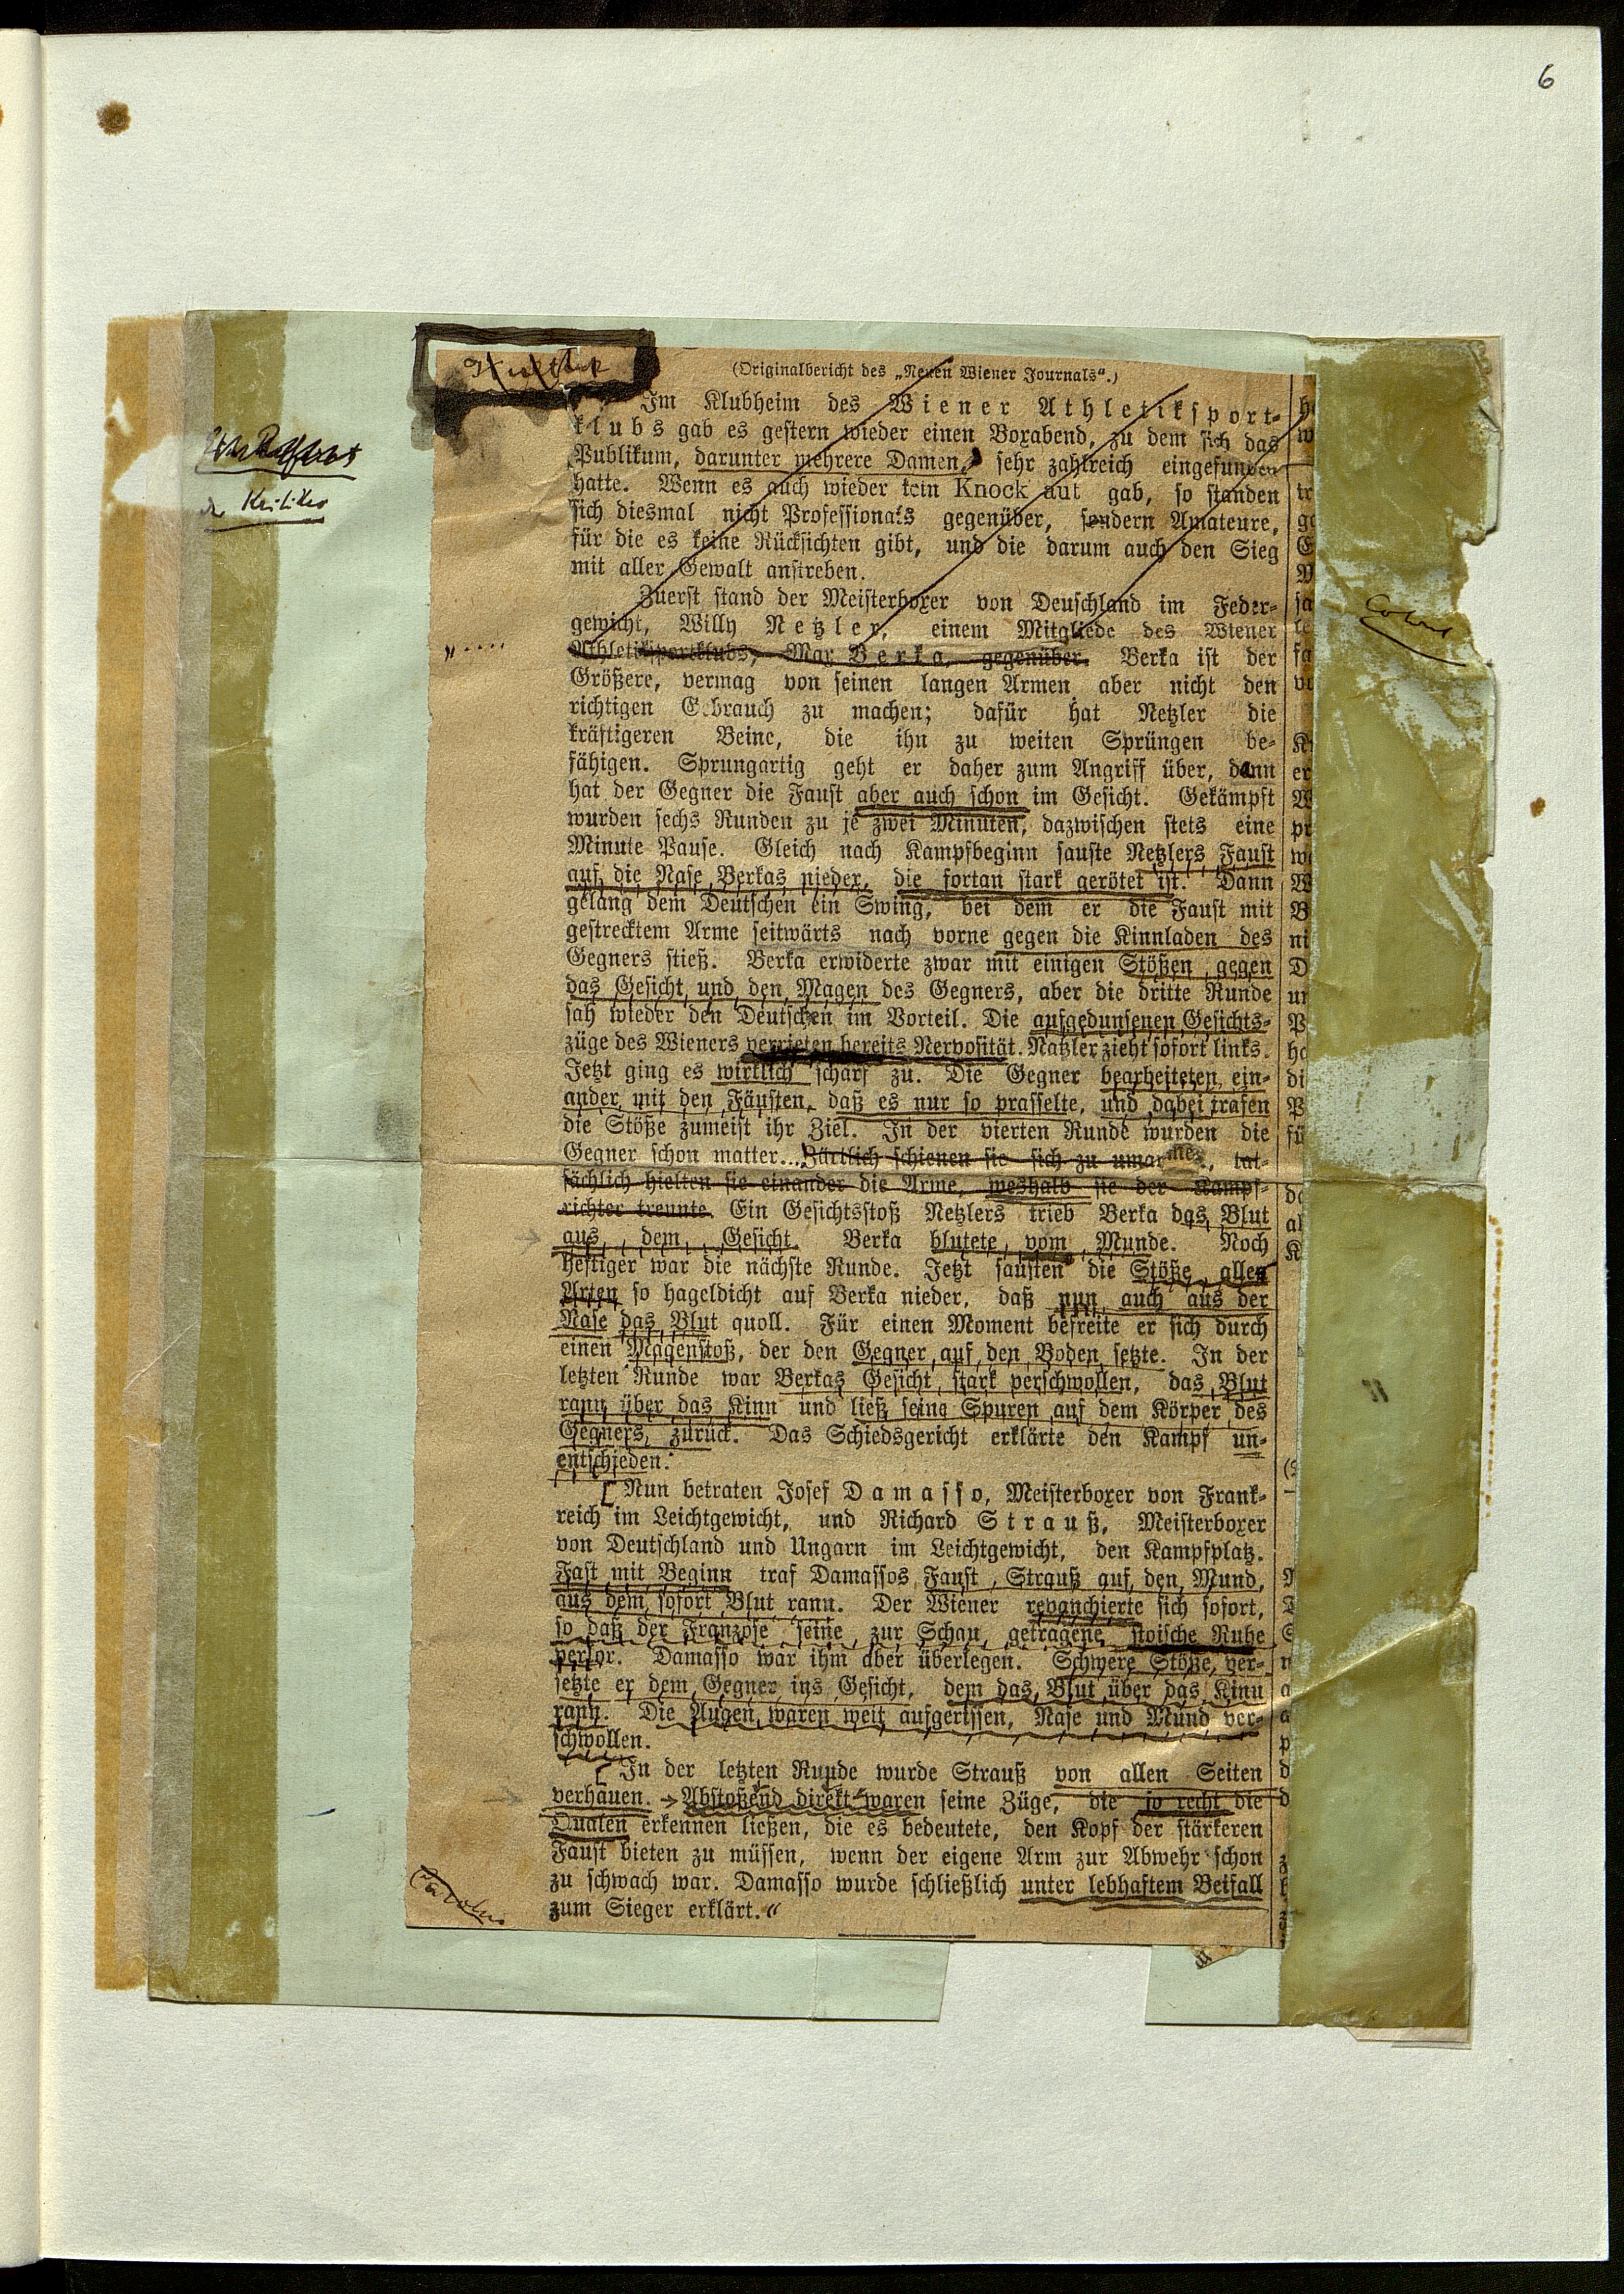 6
(Originalbericht des „Neuen Wiener Journals“.)
Im Klubheim des Wiener Athletiksport-
klubs gab es gestern wieder einen Boxabend, zu dem sich das
Publikum, darunter mehrere Damen, sehr zahlreich eingefunden
hatte. Wenn es auch wieder kein Knock aut gab, so standen
sich diesmal nicht Professionals gegenüber, sondern Amateure,
für die es keine Rücksichten gibt, und die darum auch den Sieg
mit aller Gewalt anstreben.
Zuerst stand der Meisterboxer von Deuschland im Feder-
gewicht, Willy Netzler, einem Mitgliede des Wiener
Athletiksportklubs, Max Berka, gegenüber. Berka ist der
Größere, vermag von seinen langen Armen aber nicht den
richtigen Gebrauch zu machen; dafür hat Netzler die
kräftigeren Beine, die ihn zu weiten Sprüngen be-
fähigen. Sprungartig geht er daher zum Angriff über, dann
hat der Gegner die Faust aber auch schon im Gesicht. Gekämpft
wurden sechs Runden zu je zwei Minuten, dazwischen stets eine
Minute Pause. Gleich nach Kampfbeginn sauste Netzlers Faust
auf die Nase Berkas nieder, die fortan stark gerötet ist. Dann
gelang dem Deutschen ein Swing, bei dem er die Faust mit
gestrecktem Arme seitwärts nach vorne gegen die Kinnladen des
Gegners stieß. Berka erwiderte zwar mit einigen Stößen gegen
das Gesicht und den Magen des Gegners, aber die dritte Runde
sah wieder den Deutschen im Vorteil. Die aufgedunsenen Gesichts-
züge des Wieners verrieten bereits Nervosität. Natzler zieht sofort links.
Jetzt ging es wirklich scharf zu. Die Gegner bearbeiteten ein-
ander mit den Fäusten, daß es nur so prasselte, und dabei trafen
die Stöße zumeist ihr Ziel. In der vierten Runde wurden die
Gegner schon matter... Zärtlich schienen sie sich zu umarmen, tat-
sächlich hielten sie einander die Arme, weshalb sie der Kampf-
richter trennte. Ein Gesichtsstoß Netzlers trieb Berka das Blut
aus dem Gesicht. Berka blutete vom Munde. Noch
heftiger war die nächste Runde. Jetzt sausten die Stöße aller
Arten so hageldicht auf Berka nieder, daß nun auch aus der
Nase das Blut quoll. Für einen Moment befreite er sich durch
einen Magenstoß, der den Gegner auf den Boden setzte. In der
letzten Runde war Berkas Gesicht stark verschwollen, das Blut
rann über das Kinn und ließ seine Spuren auf dem Körper des
Gegners zurück. Das Schiedsgericht erklärte den Kampf un-
entschieden.
Nun betraten Josef Damasso, Meisterboxer von Frank-
reich im Leichtgewicht, und Richard Strauß, Meisterboxer
von Deutschland und Ungarn im Leichtgewicht, den Kampfplatz.
Fast mit Beginn traf Damassos Faust Strauß auf den Mund,
aus dem sofort Blut rann. Der Wiener revanchierte sich sofort,
so daß der Franzose seine zur Schau getragene stoische Ruhe
verlor. Damasso war ihm aber überlegen. Schwere Stöße ver-
setzte er dem Gegner ins Gesicht, dem das Blut über das Kinn
rann. Die Augen waren weit aufgerissen, Nase und Mund ver-
schwollen.
In der letzten Runde wurde Strauß von allen Seiten
verhauen. Abstoßend direkt waren seine Züge, die so recht die
Qualen erkennen ließen, die es bedeutete, den Kopf der stärkeren
Faust bieten zu müssen, wenn der eigene Arm zur Abwehr schon
zu schwach war. Damasso wurde schließlich unter lebhaftem Beifall
zum Sieger erklärt.“